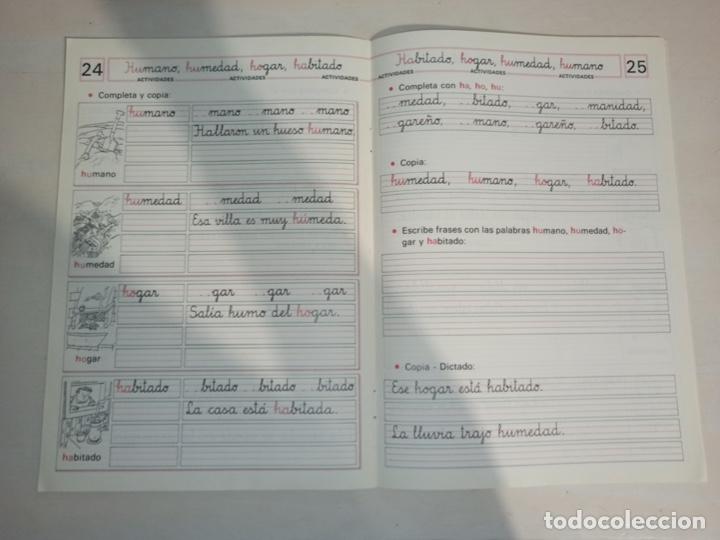 24 Humano, humedad, hogar, habitado
ACTIVIDADES ACTIVIDADES ACTIVIDADES
• Completa y copia:
humano . . mano . . mano . . mano
Hallaron un hueso humano.
humano
humedad . . medad . . medad
Esa villa es muy húmeda.
humedad
hogar . . gar . . gar . . gar
Salía humo del hogar.
hogar
habitado . . bitado . . bitado . . bitado
La casa está habitada.
habitado
Habitado, hogar, humedad, humano 25
ACTIVIDADES ACTIVIDADES ACTIVIDADES
• Completa con ha, ho, hu:
. . medad, . . bitado, . . gar, . . manidad,
. . gareño, . . mano, . . gareño, . . bitado.
• Copia:
humedad, humano, hogar, habitado.
• Escribe frases con las palabras humano, humedad, ho-
gar y habitado:
• Copia - Dictado:
Ese hogar está habitado.
La lluvia trajo humedad.
todocoleccion.net